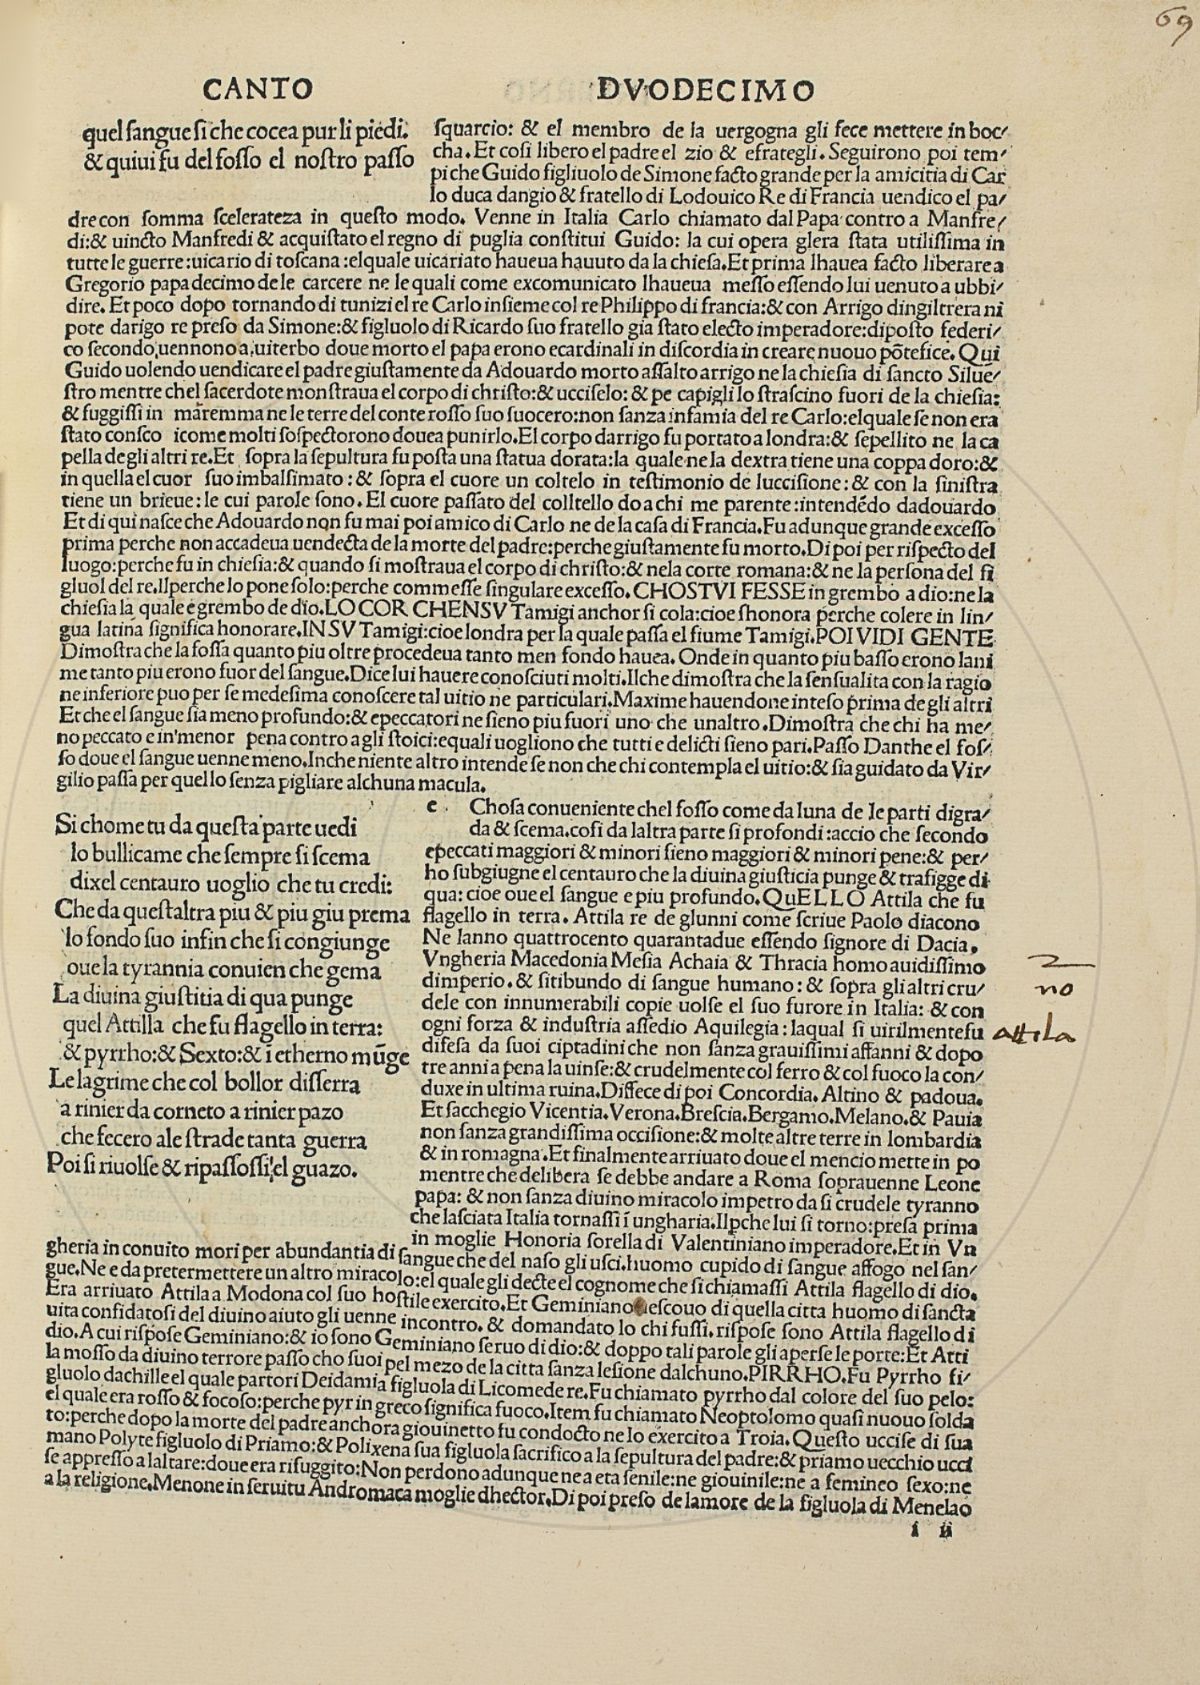 69
CANTO DVODECIMO
quel ſangue ſi che cocea pur li piedi.
& quiui fu del foſſo el noſtro paſſo
ſquarcio: & el membro de la uergogna gli fece mettere in boc/
cha. Et coſi libero el padre el zio & efrategli. Seguirono poi tem/
pi che Guido figliuolo de Simone facto grande per la amicitia di Car
lo duca dangio & fratello di Lodouico Re di Francia uendico el pa/
dre con ſomma ſcelerateza in queſto modo. Venne in Italia Carlo chiamato dal Papa contro a Manfre/
di: & uincto Manfredi & acquiſtato el regno di puglia conſtitui Guido: la cui opera glera ſtata utiliſſima in
tutte le guerre: uicario di toſcana: elquale uicariato haueua hauuto da la chieſa. Et prima lhauea facto liberare a
Gregorio papa decimo de le carcere ne le quali come excomunicato lhaueua meſſo eſſendo lui uenuto a ubbi/
dire. Et poco dopo tornando di tunizi el re Carlo inſieme col re Philippo di francia: & con Arrigo dingiltrera ni
pote darigo re preſo da Simone: & figluolo di Ricardo ſuo fratello gia ſtato electo imperadore: dipoſto federi/
co ſecondo, uennono a, uiterbo doue morto el papa erono ecardinali in diſcordia in creare nuouo põtefice. Qui
Guido uolendo uendicare el padre giuſtamente da Adouardo morto aſſalto arrigo ne la chieſia di ſancto Silue/
ſtro mentre chel ſacerdote monſtraua el corpo di chriſto: & ucciſelo: & pe capigli lo ſtraſcino fuori de la chieſia:
& fuggiſſi in maremma ne le terre del conte roſſo ſuo ſuocero: non ſanza infamia del re Carlo: elquale ſe non era
ſtato conſco icome molti ſoſpectorono douea punirlo. El corpo darrigo fu portato a londra: & ſepellito ne la ca
pella degli altri re. Et ſopra la ſepultura fu poſta una ſtatua dorata: la quale ne la dextra tiene una coppa doro: &
in quella el cuor ſuo imbalſimato: & ſopra el cuore un coltelo in teſtimonio de lucciſione: & con la ſiniſtra
tiene un brieue: le cui parole ſono. El cuore paſſato del colltello do a chi me parente: intendédo dadouardo
Et di qui naſce che Adouardo non fu mai poi amico di Carlo ne de la caſa di Francia. Fu adunque grande exceſſo
prima perche non accadeua uendecta de la morte del padre: perche giuſtamente fu morto. Di poi per riſpecto del
luogo: perche fu in chieſia: & quando ſi moſtraua el corpo di chriſto: & nela corte romana: & ne la perſona del fi
gluol del re. Ilperche lo pone ſolo: perche commeſſe ſingulare exceſſo. CHOSTVI FESSE in grembo a dio: ne la
chieſia la quale e grembo de dio. LO COR CHENSV Tamigi anchor ſi cola: cioe ſhonora perche colere in lin/
gua latina ſignifica honorare. IN SV Tamigi: cioe londra per la quale paſſa el fiume Tamigi. POI VIDI GENTE
Dimoſtra che la foſſa quanto piu oltre procedeua tanto men fondo hauea. Onde in quanto piu baſſo erono lani
me tanto piu erono fuor del ſangue. Dice lui hauere conoſciuti molti. Ilche dimoſtra che la ſenſualita con la ragio
ne inferiore puo per ſe medeſima conoſcere tal uitio ne particulari. Maxime hauendone inteſo prima de gli altri
Et che el ſangue ſia meno profundo: & epeccatori ne ſieno piu fuori uno che unaltro. Dimoſtra che chi ha me/
no peccato e in'menor pena contro agli ſtoici: equali uogliono che tutti e delicti ſieno pari. Paſſo Danthe el foſ/
ſo doue el ſangue uenne meno. Inche niente altro intende ſe non che chi contempla el uitio: & ſia guidato da Vir/
gilio paſſa per quello ſenza pigliare alchuna macula.
Si chome tu da queſta parte uedi
lo bullicame che ſempre ſi ſcema
dixel centauro uoglio che tu credi:
Che da queſtaltra piu & piu giu prema
lo fondo ſuo infin che ſi congiunge
oue la tyrannia conuien che gema
La diuina giuſtitia di qua punge
quel Attilla che fu flagello in terra:
& pyrrho: & Sexto: & ĩ etherno mũge
Le lagrime che col bollor diſſerra
a rinier da corneto a rinier pazo
che fecero ale ſtrade tanta guerra
Poi ſi riuolſe & ripaſſoſſi el guazo.
e Choſa conueniente chel foſſo come da luna de le parti digra/
da & ſcema. coſi da laltra parte ſi profondi: accio che ſecondo
epeccati maggiori & minori ſieno maggiori & minori pene: & per/
ho ſubgiugne el centauro che la diuina giuſticia punge & trafigge di
qua: cioe oue el ſangue e piu profundo. QuELLO Attila che fu
flagello in terra. Attila re de glunni come ſcriue Paolo diacono
Ne lanno quattrocento quarantadue eſſendo ſignore di Dacia.
Vngheria Macedonia Meſia Achaia & Thracia homo auidiſſimo
dimperio. & ſitibundo di ſangue humano: & ſopra gli altri cru/
dele con innumerabili copie uolſe el ſuo furore in Italia: & con
ogni forza & induſtria aſſedio Aquilegia: laqual ſi uirilmente fu
difeſa da ſuoi ciptadini che non ſanza grauiſſimi affanni & dopo
tre anni a pena la uinſe: & crudelmente col ferro & col fuoco la con/
duxe in ultima ruina. Diſfece di poi Concordia. Altino & padoua.
Et ſacchegio Vicentia. Verona. Breſcia. Bergamo. Melano. & Pauia
non ſanza grandiſſima occiſione: & molte altre terre in lombardia
& in romagna. Et finalmente arriuato doue el mencio mette in po
mentre che delibera ſe debbe andare a Roma ſoprauenne Leone
papa: & non ſanza diuino miracolo impetro da ſi crudele tyranno
che laſciata Italia tornaſſi ĩ ungharia. Ilpche lui ſi torno: preſa prima
in moglie Honoria ſorella di Valentiniano imperadore. Et in Vn
no
attila
gheria in conuito mori per abundantia di ſangue che del naſo gli uſci. huomo cupido di ſangue affogo nel ſan/
gue. Ne e da pretermettere un altro miracolo: el quale gli decte el cognome che ſi chiamaſſi Attila flagello di dio.
Era arriuato Attila a Modona col ſuo hoſtile exercito. Et Geminiano eſcouo di quella citta huomo di ſancta
uita confidatoſi del diuino aiuto gli uenne incontro. & domandato lo chi fuſſi. riſpoſe ſono Attila flagello di
dio. A cui riſpoſe Geminiano: & io ſono Geminiano ſeruo di dio: & doppo tali parole gli aperſe le porte: Et Atti
la moſſo da diuino terrore paſſo cho ſuoi pel mezo de la citta ſanza leſione dalchuno. PIRRHO. Fu Pyrrho fi/
gluolo dachille el quale partori Deidamia figluola di Licomede re. Fu chiamato pyrrho dal colore del ſuo pelo:
el quale era roſſo & focoſo: perche pyr in greco ſignifica fuoco. Item fu chiamato Neoptolomo quaſi nuouo ſolda
to: perche dopo la morte del padre anchora giouinetto fu condocto ne lo exercito a Troia. Queſto ucciſe di ſua
mano Polyte figluolo di Priamo: & Polixena ſua figluola ſacrifico a la ſepultura del padre: & priamo uecchio ucci
ſe appreſſo a laltare: doue era rifuggito: Non perdono adunque ne a eta ſenile: ne giouinile: ne a femineo ſexo: ne
a la religione. Menone in ſeruitu Andromaca moglie dhector. Di poi preſo de lamore de la figluola di Menelao
i ii